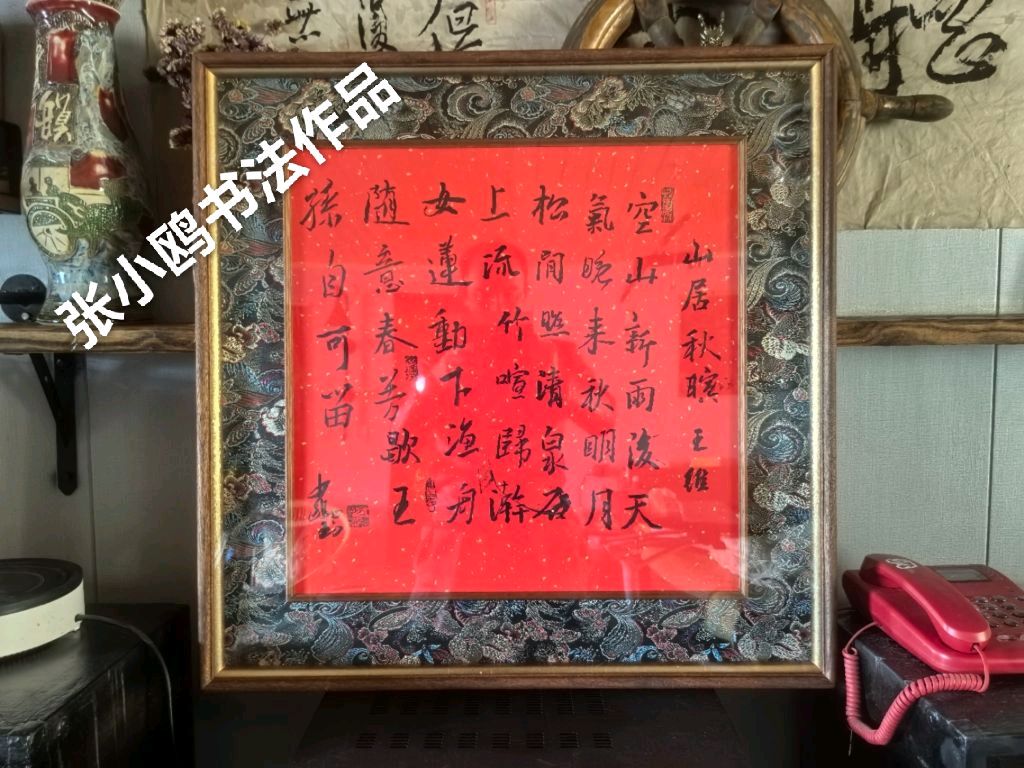 张小鸥书法作品
山居秋暝 王維
空山新雨後天
氣晚来秋明月
松間照清泉石
上流竹喧歸澣
女蓮動下漁舟
随意春芳歇王
孫自可留